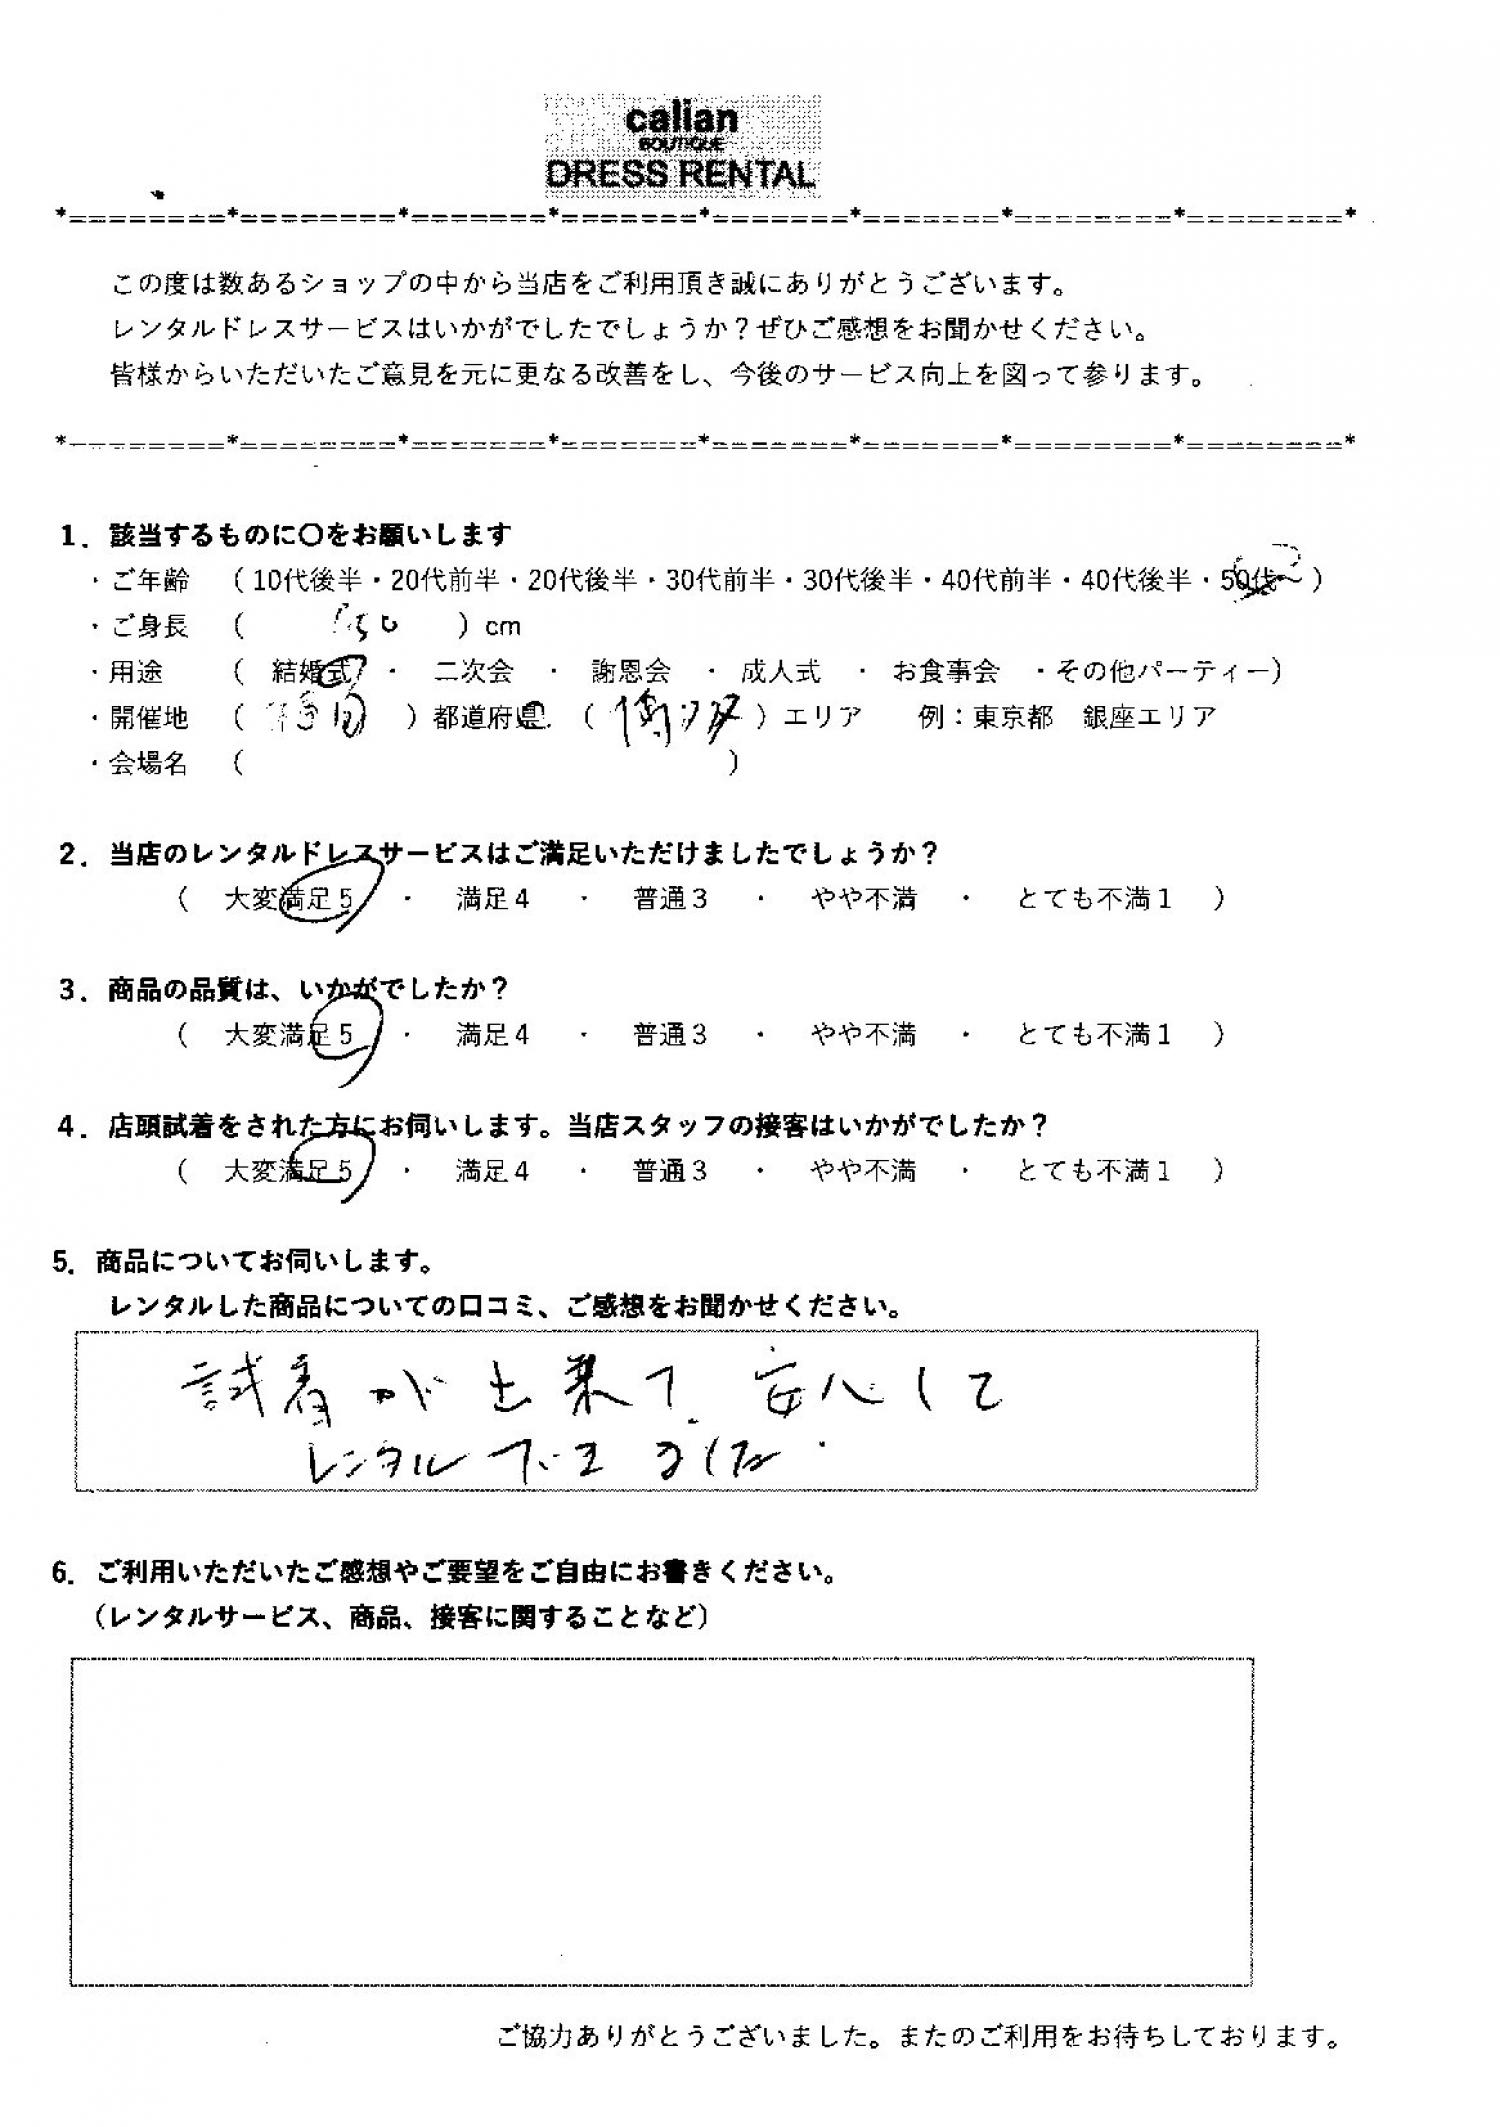 calian
BOUTIQUE
DRESS RENTAL
*========*========*=======*=======*=======*=======*========*========*
この度は数あるショップの中から当店をご利用頂き誠にありがとうございます。
レンタルドレスサービスはいかがでしたでしょうか？ぜひご感想をお聞かせください。
皆様からいただいたご意見を元に更なる改善をし、今後のサービス向上を図って参ります。
*========*========*=======*=======*=======*=======*========*========*
1．該当するものに〇をお願いします
・ご年齢 （ 10代後半・20代前半・20代後半・30代前半・30代後半・40代前半・40代後半・50代～ ）
・ご身長 （ 150 ）cm
・用途 （ 結婚式 ・ 二次会 ・ 謝恩会 ・ 成人式 ・ お食事会 ・その他パーティー）
・開催地 （ 福岡 ）都道府県 （ 博多 ）エリア 例：東京都 銀座エリア
・会場名 （ ）
2．当店のレンタルドレスサービスはご満足いただけましたでしょうか？
（ 大変満足5 ・ 満足4 ・ 普通3 ・ やや不満 ・ とても不満1 ）
3．商品の品質は、いかがでしたか？
（ 大変満足5 ・ 満足4 ・ 普通3 ・ やや不満 ・ とても不満1 ）
4．店頭試着をされた方にお伺いします。当店スタッフの接客はいかがでしたか？
（ 大変満足5 ・ 満足4 ・ 普通3 ・ やや不満 ・ とても不満1 ）
5．商品についてお伺いします。
レンタルした商品についての口コミ、ご感想をお聞かせください。
試着が出来て、安心して
レンタルできました。
6．ご利用いただいたご感想やご要望をご自由にお書きください。
（レンタルサービス、商品、接客に関することなど）
ご協力ありがとうございました。またのご利用をお待ちしております。